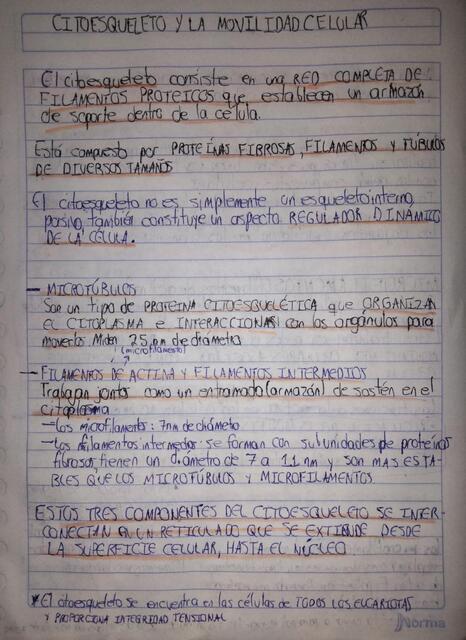 CITOESQUELETO Y LA MOVILIDAD CELULAR
El citoesqueleto consiste en una RED COMPLETA DE
FILAMENTOS PROTEICOS que establecen un armazón
de soporte dentro de la célula.
Está compuesto por PROTEÍNAS FIBROSAS, FILAMENTOS Y TÚBULOS
DE DIVERSOS TAMAÑOS
El citoesqueleto no es simplemente un esqueleto interno
pasivo, también constituye un aspecto REGULADOR DINAMICO
DE LA CÉLULA.
- MICROTÚBULOS
Son un tipo de PROTEINA CITOESQUELÉTICA que ORGANIZAN
EL CITOPLASMA e INTERACCIONAN con los orgánulos para
moverlos. Miden 25 nm de diámetro
(microfilamento)
- FILAMENTOS DE ACTINA Y FILAMENTOS INTERMEDIOS
Trabajan juntos como un entramado (armazón) de sostén en el
citoplasma
- Los microfilamentos: 7 nm de diámetro
- Los filamentos intermedios: se forman con subunidades de proteínas
fibrosas, tienen un diámetro de 7 a 11 nm y son MAS ESTA-
BLES QUE LOS MICROTÚBULOS Y MICROFILAMENTOS
ESTOS TRES COMPONENTES DEL CITOESQUELETO SE INTER-
CONECTAN EN UN RETICULADO QUE SE EXTIENDE DESDE
LA SUPERFICIE CELULAR, HASTA EL NÚCLEO
* El citoesqueleto se encuentra en las células de TODOS LOS EUCARIOTAS
Y PROPORCIONA INTEGRIDAD TENSIONAL
Norma